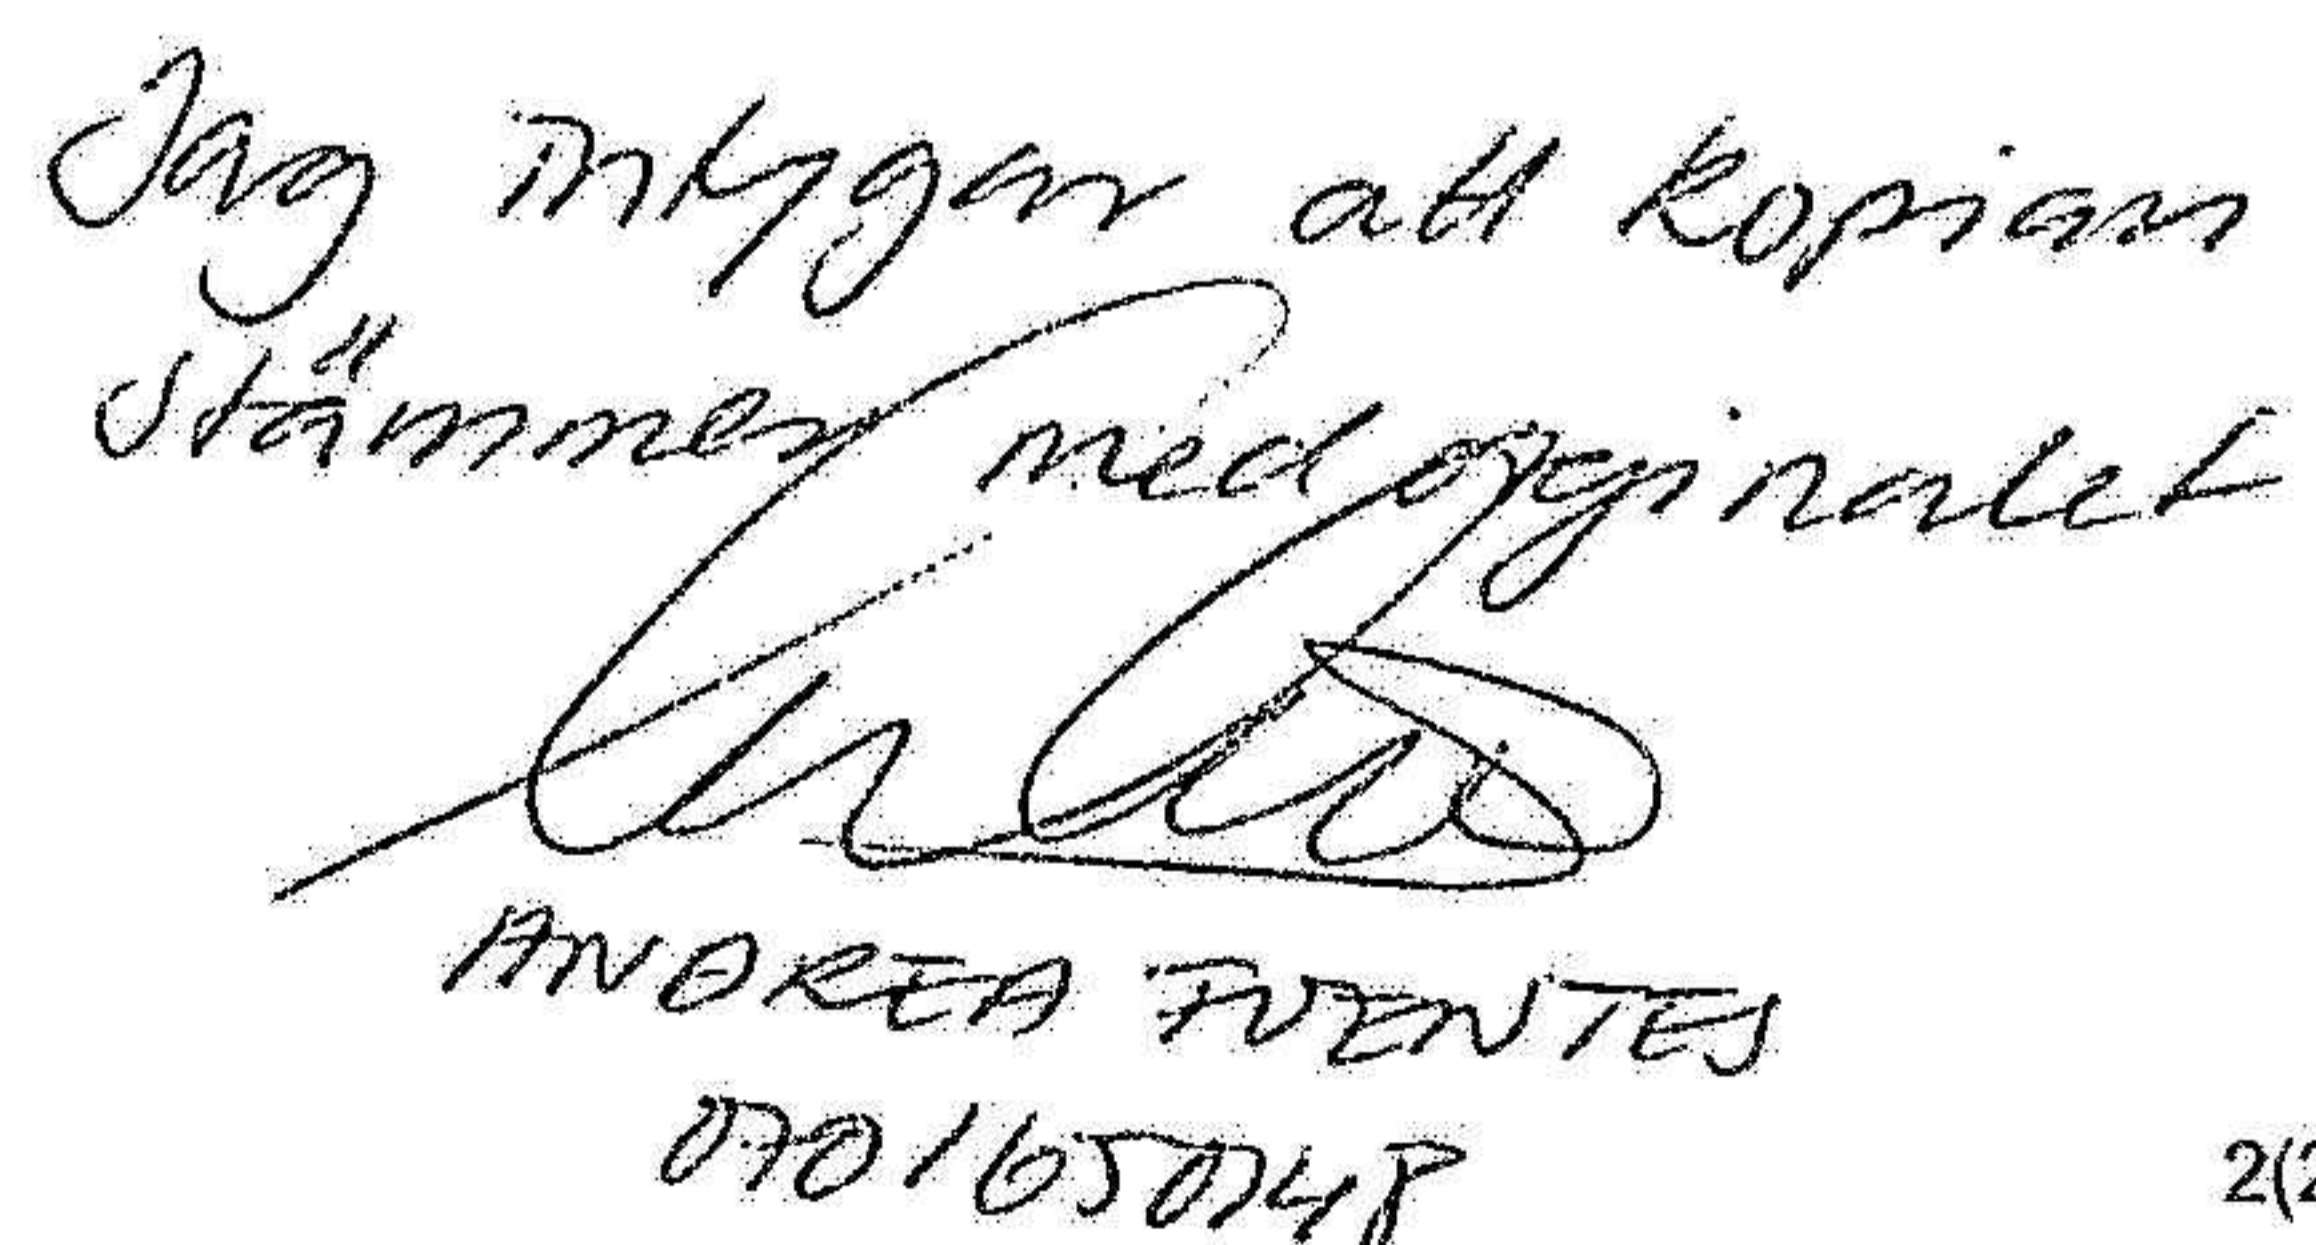 Jag intygar att kopian
stämmer med orginalet
ANDREA FUENTES
070 1650748
2(2